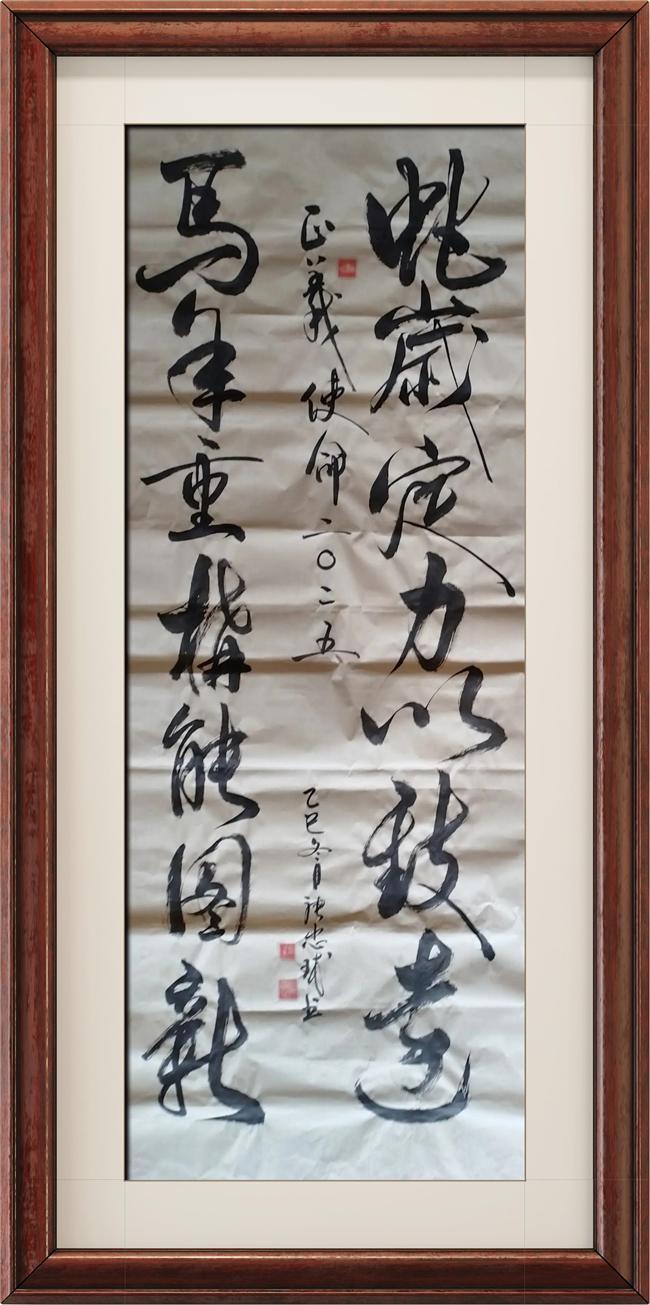 蛇歲定力以致遠
正義使命二〇二五
乙巳冬月張忠書
馬年重構能圖新